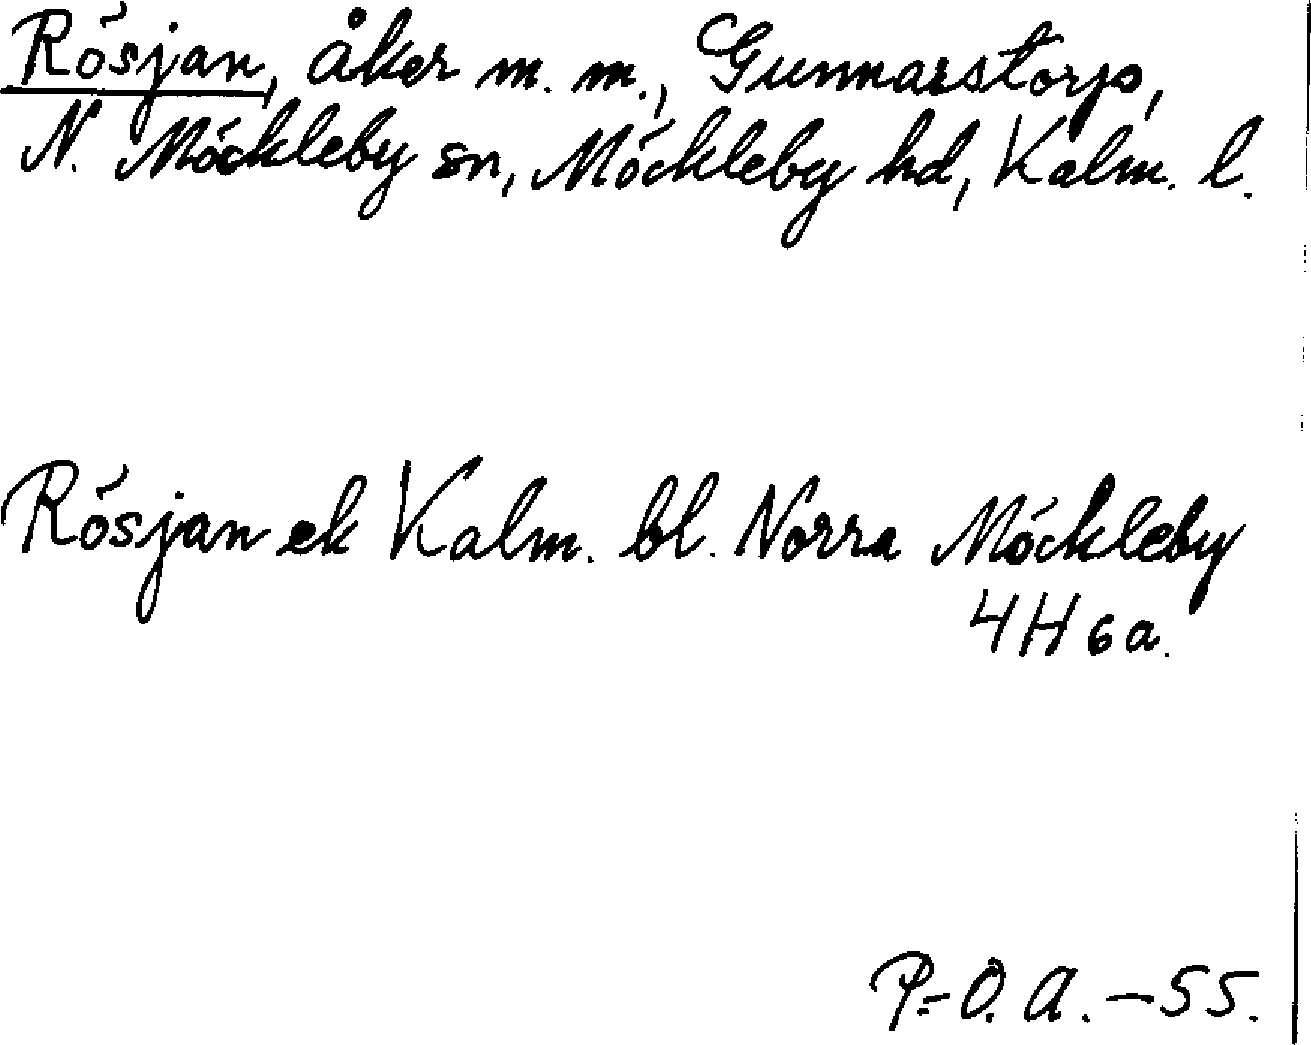 Rösjan, åker m. m., Gunnarstorp,
N. Möckleby sn, Möckleby hd, Kalm. l.
Rösjan ek Kalm. bl. Norra Möckleby
4H6a.
P.-O. A. -55.